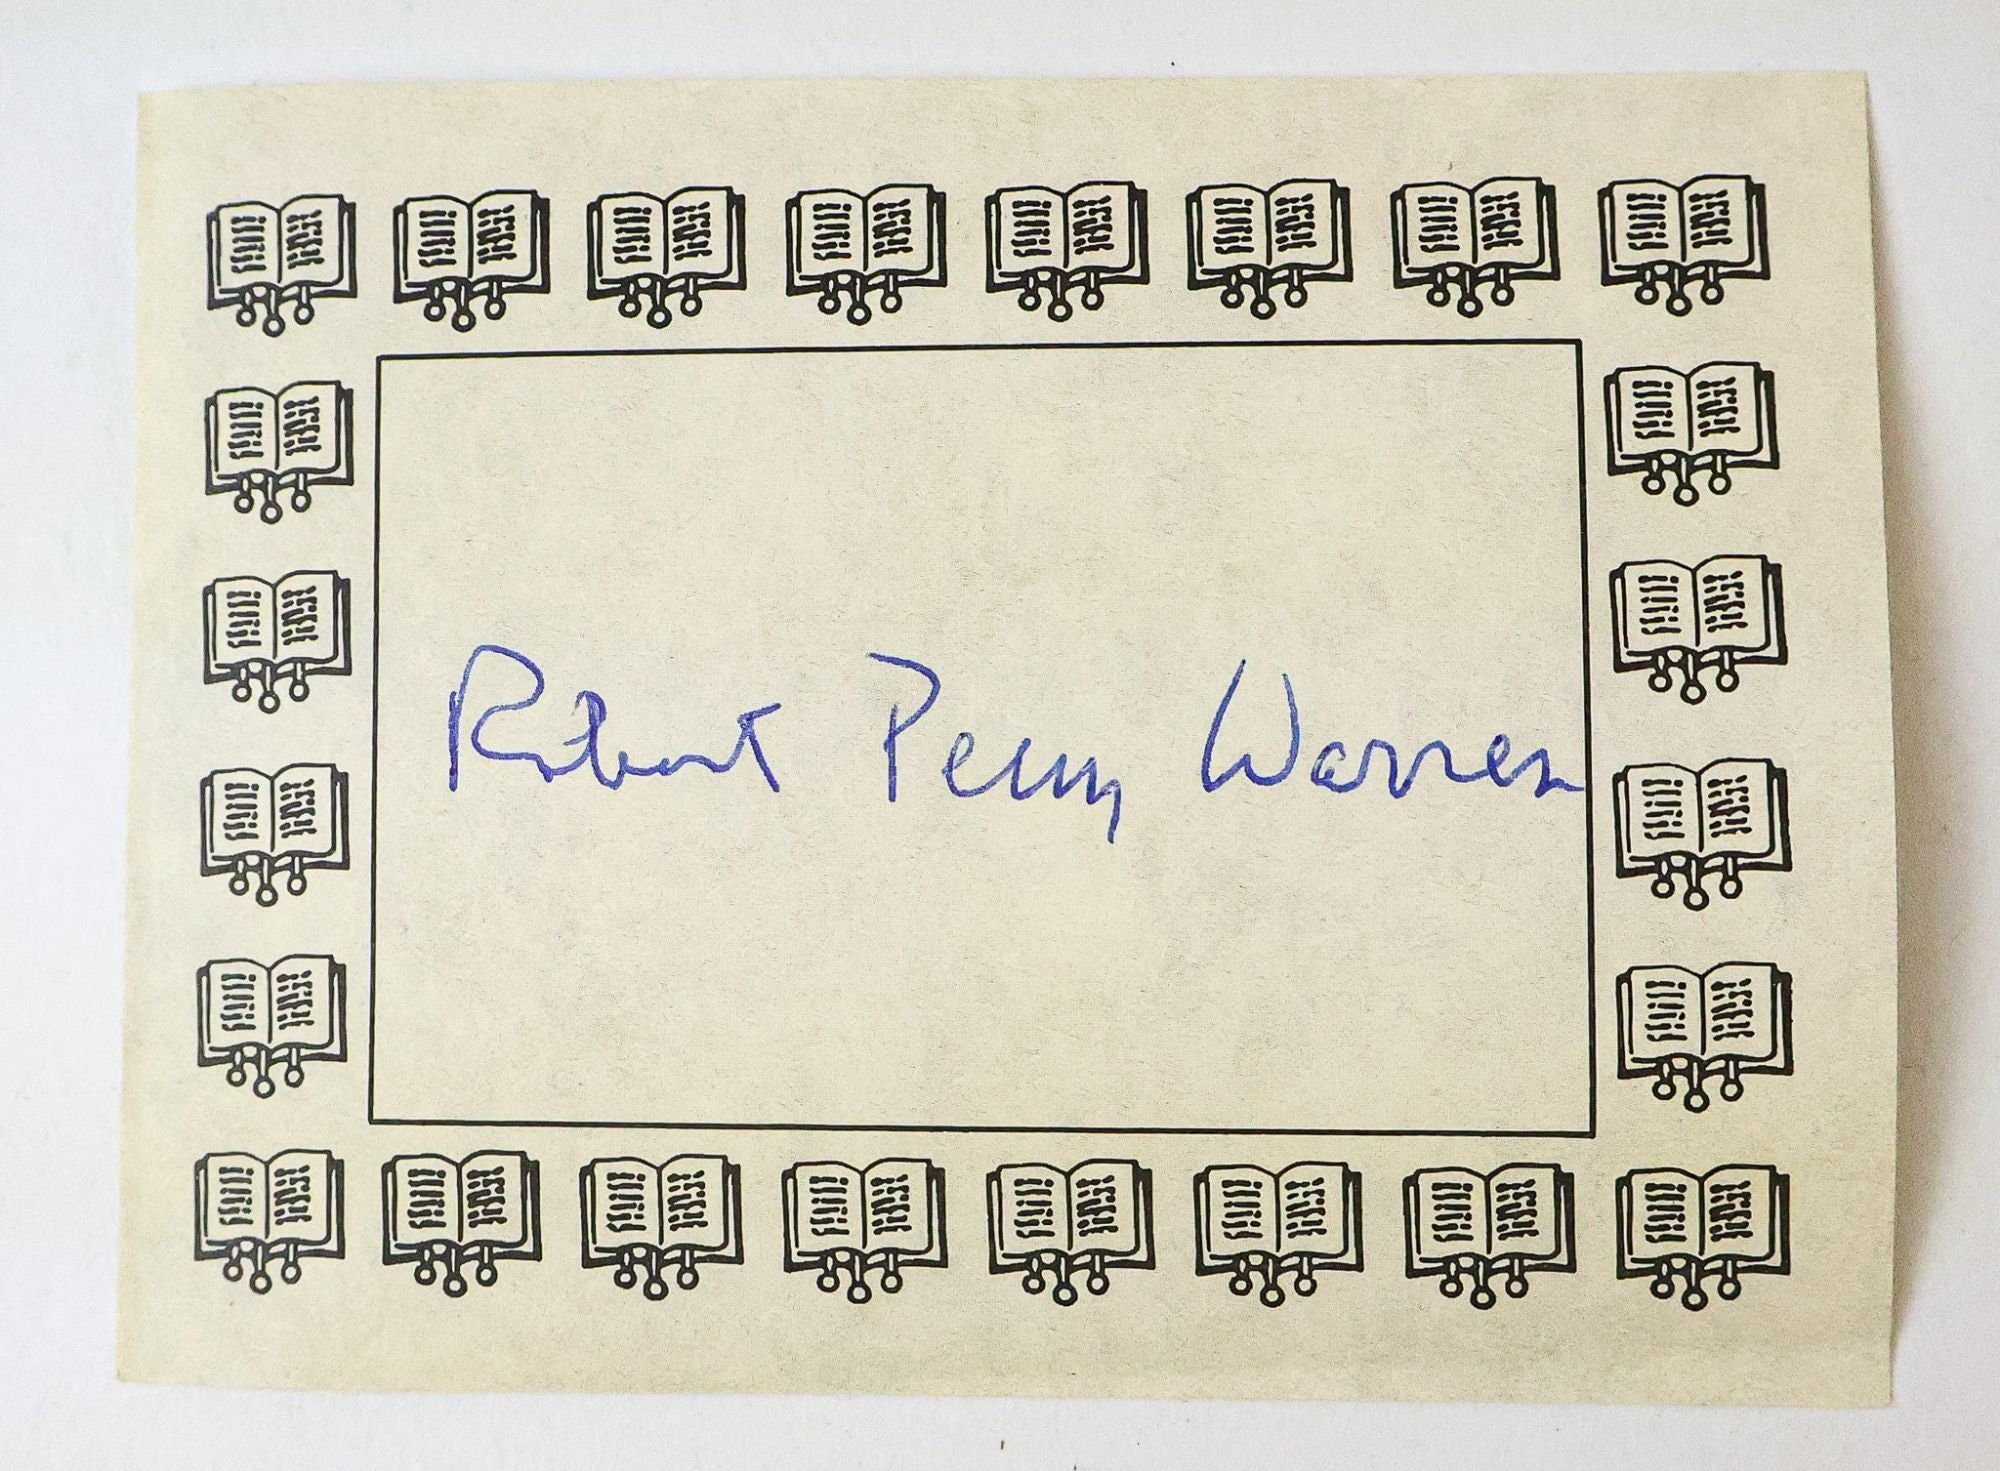 Robert Penn Warren